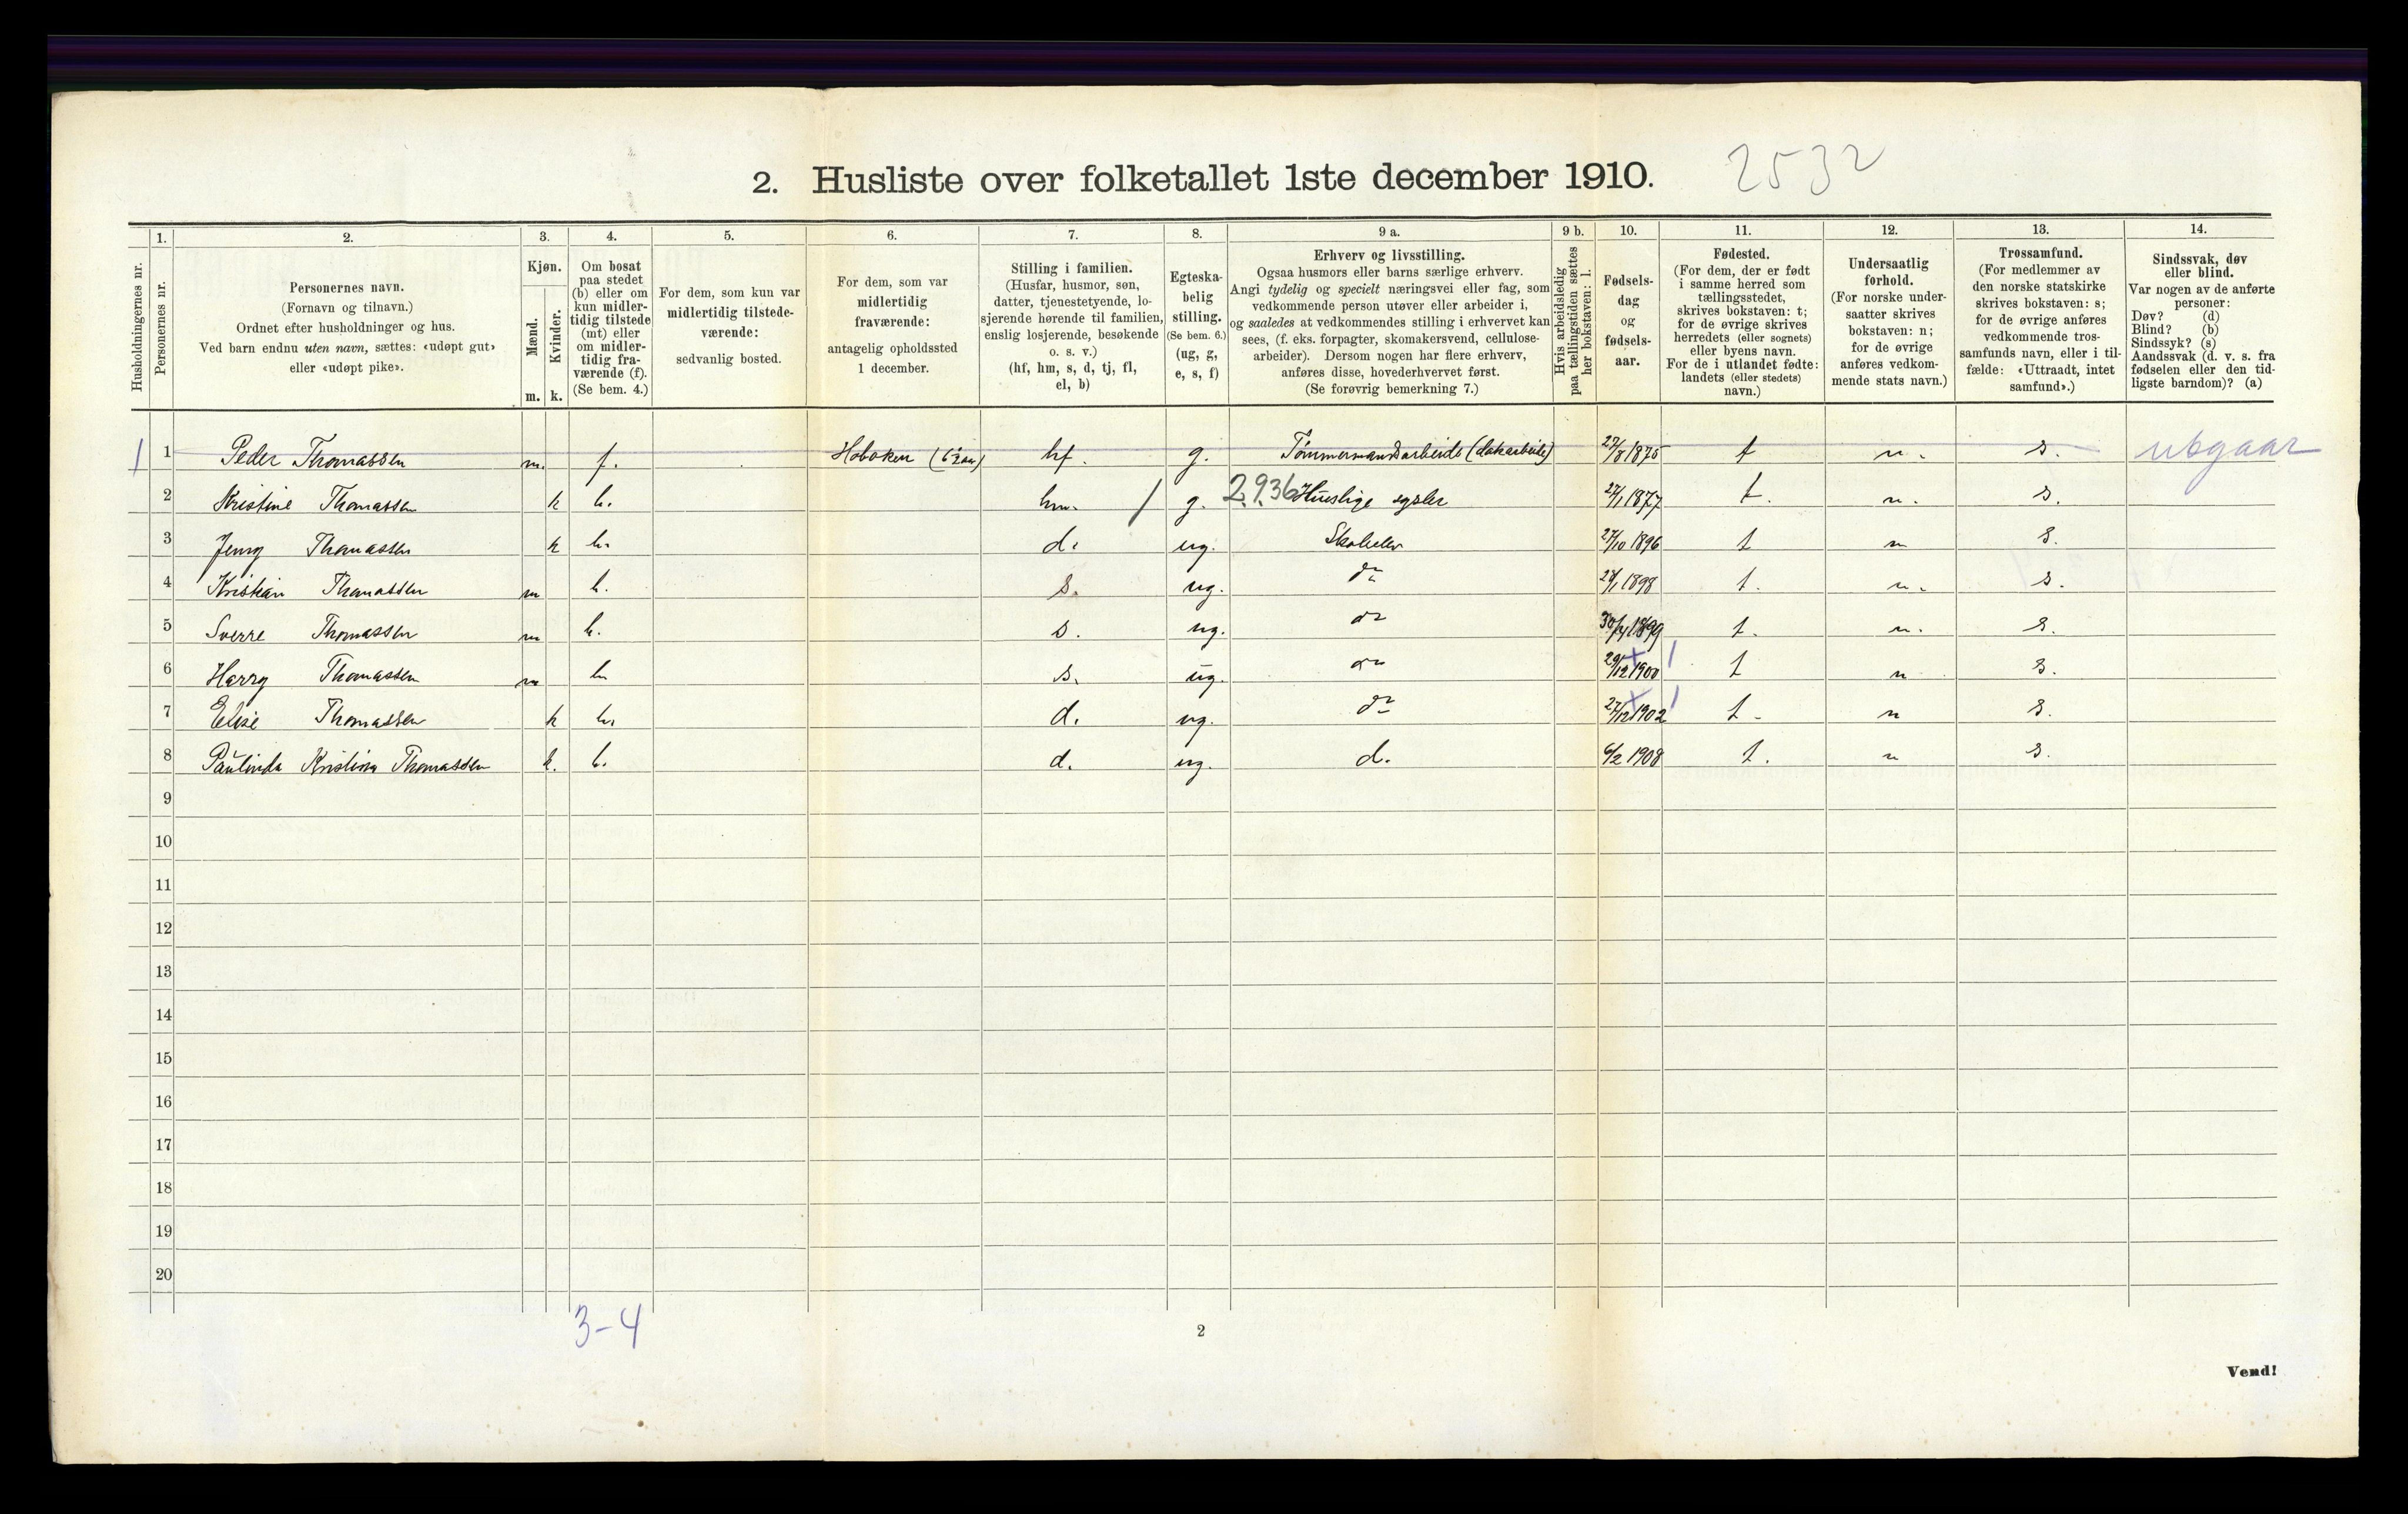 2. Husliste over folketallet 1ste december 1910. 2532
Husholdningernes nr.
1. Personernes nr.
2. Personernes navn.
(Fornavn og tilnavn.)
Ordnet efter husholdninger og hus.
Ved barn endnu uten navn, sættes: «udøpt gut»
eller «udøpt pike».
3. Kjøn.
Mænd. Kvinder.
m. k.
4. Om bosat
paa stedet
(b) eller om
kun midler-
tidig tilstede
(mt) eller
om midler-
tidig fra-
værende (f).
(Se bem. 4.)
5. For dem, som kun var
midlertidig tilstede-
værende:
sedvanlig bosted.
6. For dem, som var
midlertidig
fraværende:
antagelig opholdssted
1 december.
7. Stilling i familien.
(Husfar, husmor, søn,
datter, tjenestetyende, lo-
sjerende hørende til familien,
enslig losjerende, besøkende
o. s. v.)
(hf, hm, s, d, tj, fl,
el, b)
8. Egteska-
belig
stilling.
(Se bem. 6.)
(ug, g,
e, s, f)
9 a. Erhverv og livsstilling.
Ogsaa husmors eller barns særlige erhverv.
Angi tydelig og specielt næringsvei eller fag, som
vedkommende person utøver eller arbeider i,
og saaledes at vedkommendes stilling i erhvervet kan
sees, (f. eks. forpagter, skomakersvend, cellulose-
arbeider). Dersom nogen har flere erhverv,
anføres disse, hovederhvervet først.
(Se forøvrig bemerkning 7.)
9 b. Hvis arbeidsledig
paa tællingstiden sættes
her bokstaven: l.
10. Fødsels-
dag
og
fødsels-
aar.
11. Fødested.
(For dem, der er født
i samme herred som
tællingsstedet,
skrives bokstaven: t;
for de øvrige skrives
herredets (eller sognets)
eller byens navn.
For de i utlandet fødte:
landets (eller stedets)
navn.)
12. Undersaatlig
forhold.
(For norske under-
saatter skrives
bokstaven: n;
for de øvrige
anføres vedkom-
mende stats navn.)
13. Trossamfund.
(For medlemmer av
den norske statskirke
skrives bokstaven: s;
for de øvrige anføres
vedkommende tros-
samfunds navn, eller i til-
fælde: «Uttraadt, intet
samfund».)
14. Sindssvak, døv
eller blind.
Var nogen av de anførte
personer:
Døv? (d)
Blind? (b)
Sindssyk? (s)
Aandssvak (d. v. s. fra
fødselen eller den tid-
ligste barndom)? (a)
1 1 Peder Thomassen m. f. Hoboken hf. g. Tømmermandsarbeide (dokarbeide) 27/8 1875 t n. s. utgaar
2 Kristine Thomassen k b. hm. / g. 2.9.36 Huslige sysler 27/1 1877 t. n. s.
3 Jenny Thomassen k b. d. ug. Skoleelev 27/10 1896 t n s.
4 Kristian Thomassen m b. s. ug. do 1898 t. n. s.
5 Sverre Thomassen m b. s. ug. do 30/4 1899 t. n. s.
6 Harry Thomassen m b s. ug. do 29/12 1900 t n s.
7 Elise Thomassen k b. d. ug. do 27/12 1902 t. n s.
8 Paulinda Kristina Thomassen k. b. d. ug. d. 6/2 1908 t. n s.
9
10
11
12
13
14
15
16
17
18
19
20
3-4
2
Vend!